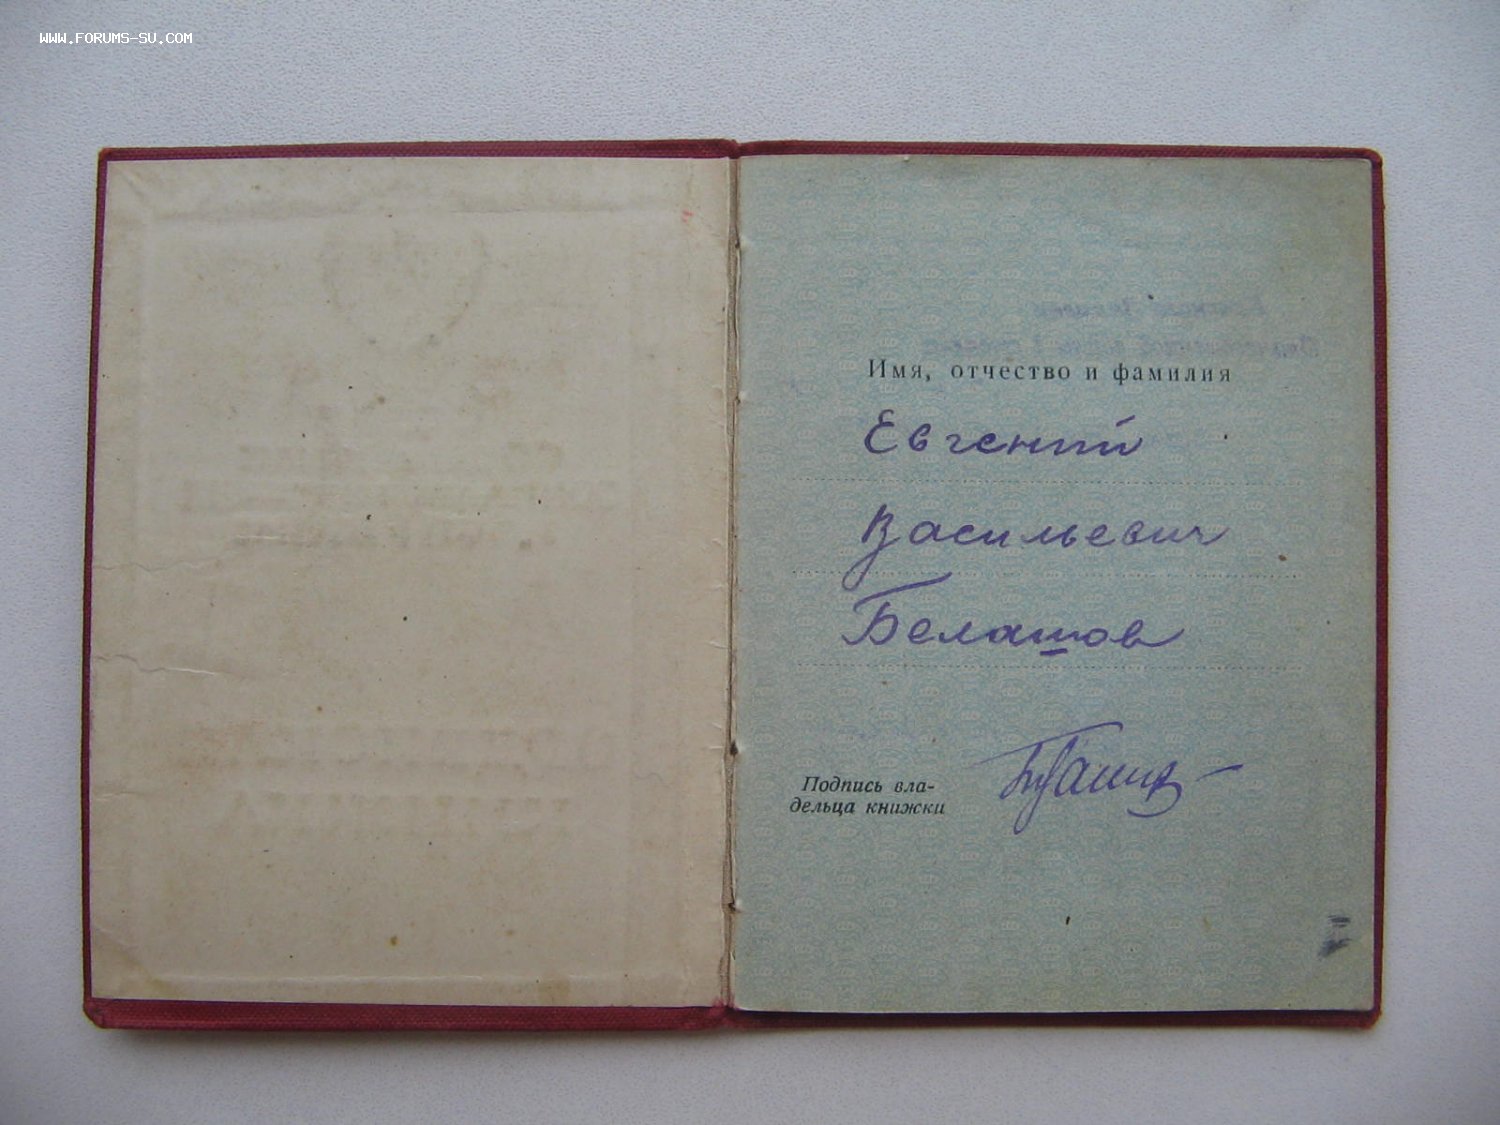 WWW.FORUMS-SU.COM
Имя, отчество и фамилия
Евгений
Васильевич
Белашов
Подпись вла-
дельца книжки